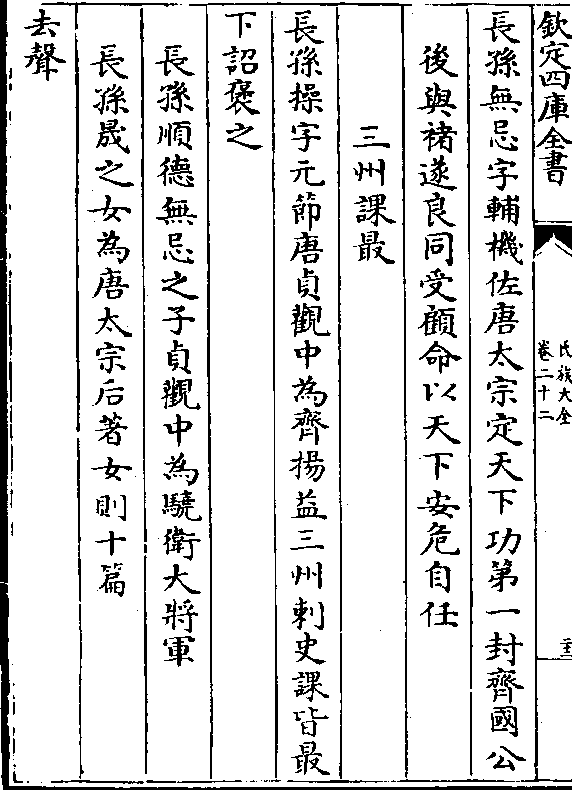 欽定四庫全書
氏族大全
卷二十二
二十三
長孫無忌字輔機佐唐太宗定天下功第一封齊國公
後與褚遂良同受顧命以天下安危自任
三州課最
長孫操字元節唐貞觀中為齊揚益三州刺史課皆最
下詔褒之
長孫順德無忌之子貞觀中為驍衛大將軍
長孫晟之女為唐太宗后著女則十篇
去聲